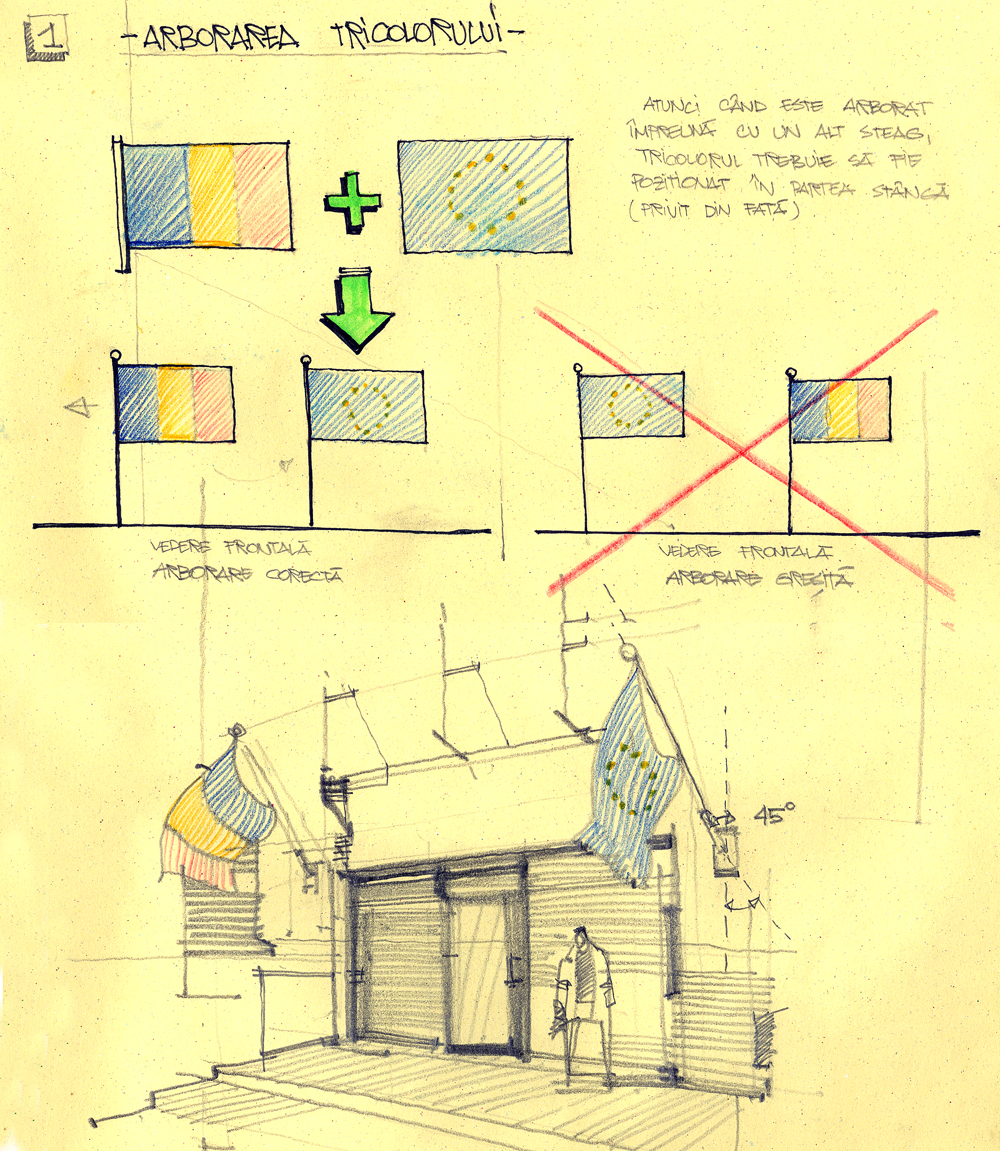 1
-ARBORAREA TRICOLORULUI-
ATUNCI CÂND ESTE ARBORAT
ÎMPREUNĂ CU UN ALT STEAG,
TRICOLORUL TREBUIE SĂ FIE
POZIȚIONAT ÎN PARTEA STÂNGĂ
(PRIVIT DIN FAȚĂ)
VEDERE FRONTALĂ
ARBORARE CORECTĂ
VEDERE FRONTALĂ
ARBORARE GREȘITĂ
45°